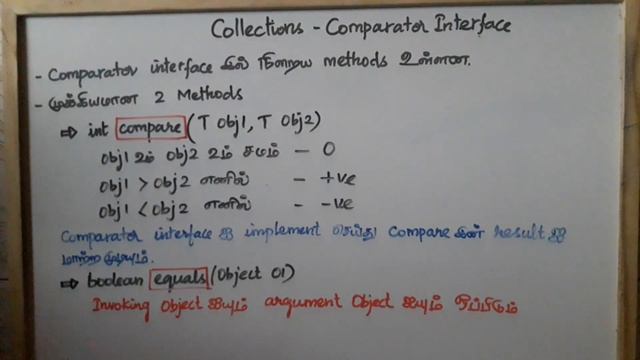 Collections - Comparator Interface
- Comparator interface இல் நிறைய methods உள்ளன.
- முக்கியமான 2 Methods
⇒ int compare (T Obj1, T Obj2)
Obj1 உம் Obj2 உம் சமம் - 0
Obj1 > Obj2 எனில் - +ve
Obj1 < Obj2 எனில் - -ve
Comparator interface ஐ implement செய்து Compare இன் result ஐ
மாற்ற முடியும்.
⇒ boolean equals (Object O1)
Invoking Object ஐயும் argument Object ஐயும் ஒப்பிடும்